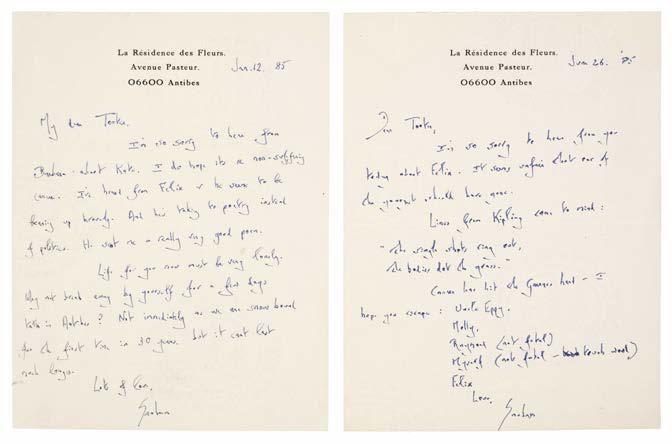 La Résidence des Fleurs.
Avenue Pasteur.
06600 Antibes
Jan. 12. 85
My dear Tooter,
I'm so sorry to hear from
Barbara about Kate. I do hope its a non-suffering
cancer. I've heard from Felix & he seems to be
bearing up bravely. And his taking to poetry instead
of politics. He sent me a really very good poem.
Life for you now must be very lonely.
Why not break away by yourself for a few days
talk in Antibes? Not immediately as we are snow bound
for the first time in 30 years. but it can't last
much longer.
Lots of love,
Graham
La Résidence des Fleurs.
Avenue Pasteur.
06600 Antibes
June 26. 85
Dear Tooter,
I'm so sorry to hear from you
today about Felix. It seems unfair that one of
the youngest should have gone.
Lines from Kipling come to mind:
"The single shots ring out,
the bodies dot the grass."
Cancer has hit the Greenes hard - I
hope you escape: Uncle Eppy,
Molly,
Raymond (not fatal)
Myself (not fatal - touch wood)
Felix
Love,
Graham